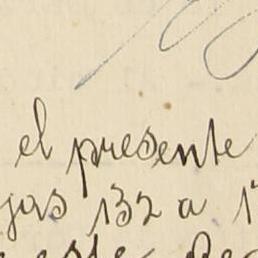 el presente
jas 132 a 1
este